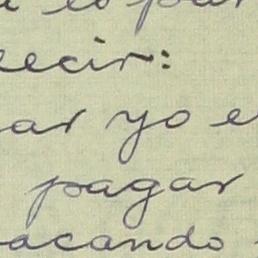 decir:
ar yo e
pagar
acando